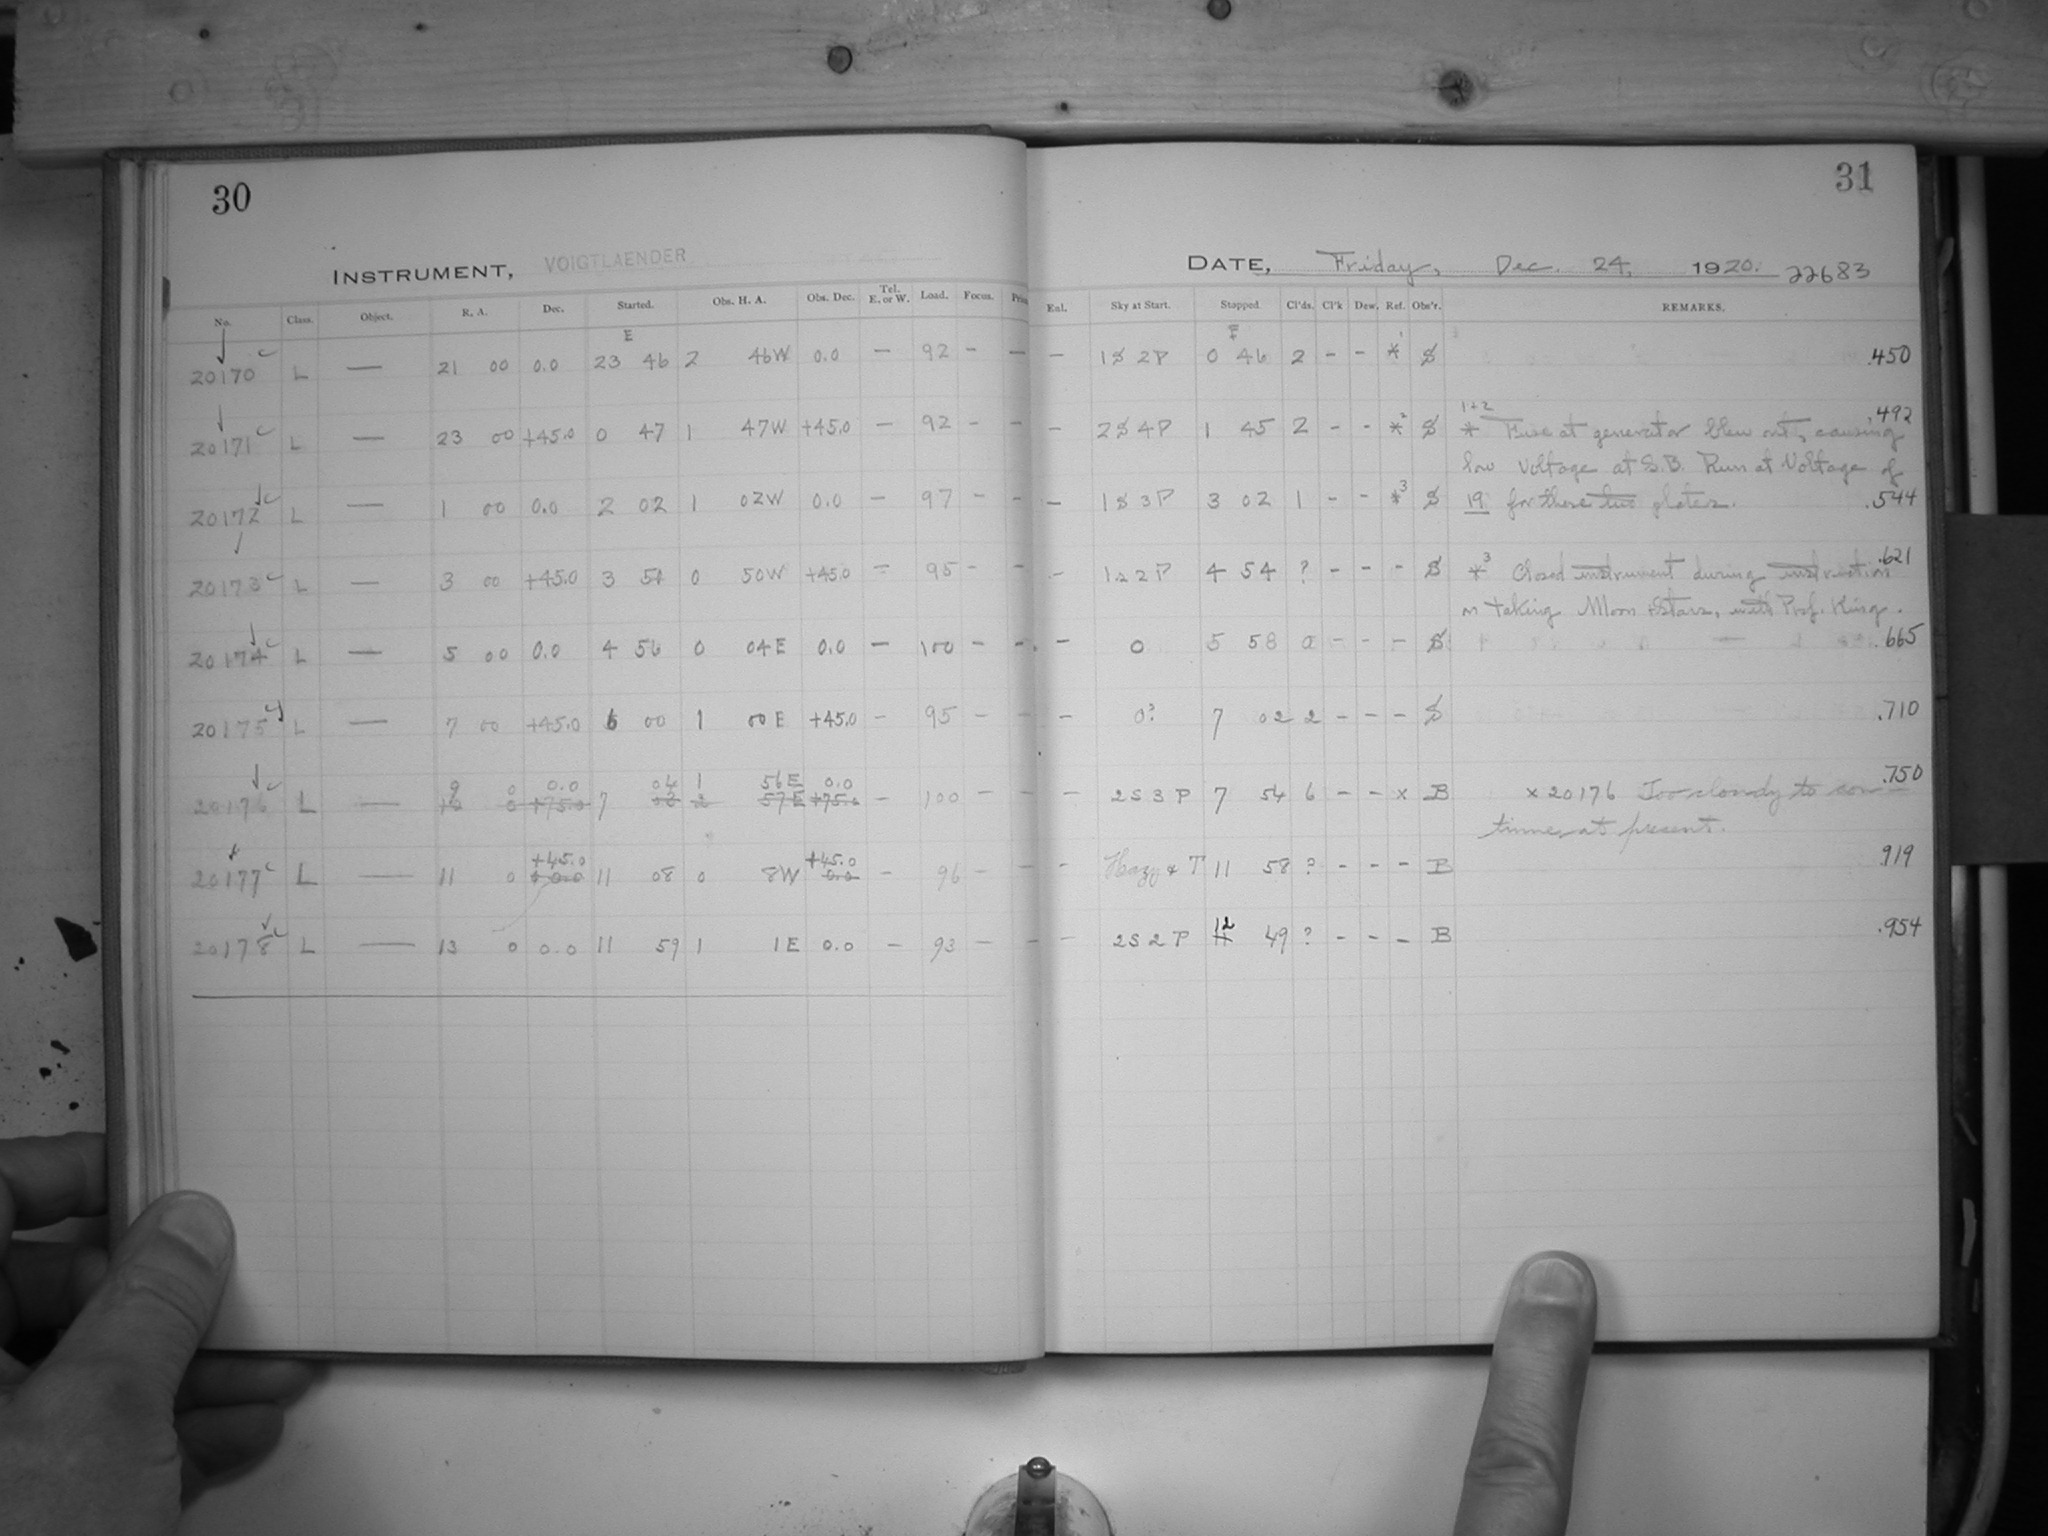 30
31
INSTRUMENT, VOIGTLAENDER
DATE, Friday, Dec. 24, 1920. 22683
No. Class. Object. R. A. Dec. Started. Obs. H. A. Obs. Dec. Tel. E. or W. Load. Focus. Enl. Sky at Start. Stopped. Cl'ds. Cl'k Dew. Ref. Obs'r. REMARKS.
E
20170 L — 21 00 0.0 23 46 2 46W 0.0 — 92 - — — 1S 2P 0 46 2 - - *1 S .450
20171 L — 23 00 +45.0 0 47 1 47W +45.0 — 92 - - - 2S 4P 1 45 2 - - *2 S .492
1+2
* Fuse at generator blew out, causing
low voltage at S.B. Run at Voltage of
20172 L — 1 00 0.0 2 02 1 02W 0.0 — 97 - - — 1S 3P 3 02 1 - - *3 S .544
19 for these two plates.
20173 L — 3 00 +45.0 3 51 0 50W +45.0 — 95 - - - 1S 2P 4 54 ? - - - S .621
*3 Closed instrument during instruction
on taking Moon & Stars, with Prof. King.
20174 L — 5 00 0.0 4 56 0 04E 0.0 — 100 - - - 0 5 58 0 - - - S .665
20175 L — 7 00 +45.0 6 00 1 00E +45.0 - 95 - - - 0? 7 02 2 - - - S .710
9 0 0.0 04 1 56E 0.0
20176 L — 10 0 +75.0 7 02 2 57E +75.0 - 100 - - - 2S 3P 7 54 6 - - x B .750
x 20176 Too cloudy to con-
tinue at present.
+45.0 +45.0
20177 L — 11 0 0.0 11 08 0 8W 0.0 - 96 - - - Hazy & T 11 58 ? - - - B .919
12
20178 L — 13 0 0.0 11 59 1 1E 0.0 - 93 - - - 2S 2P 11 49 ? - - - B .954